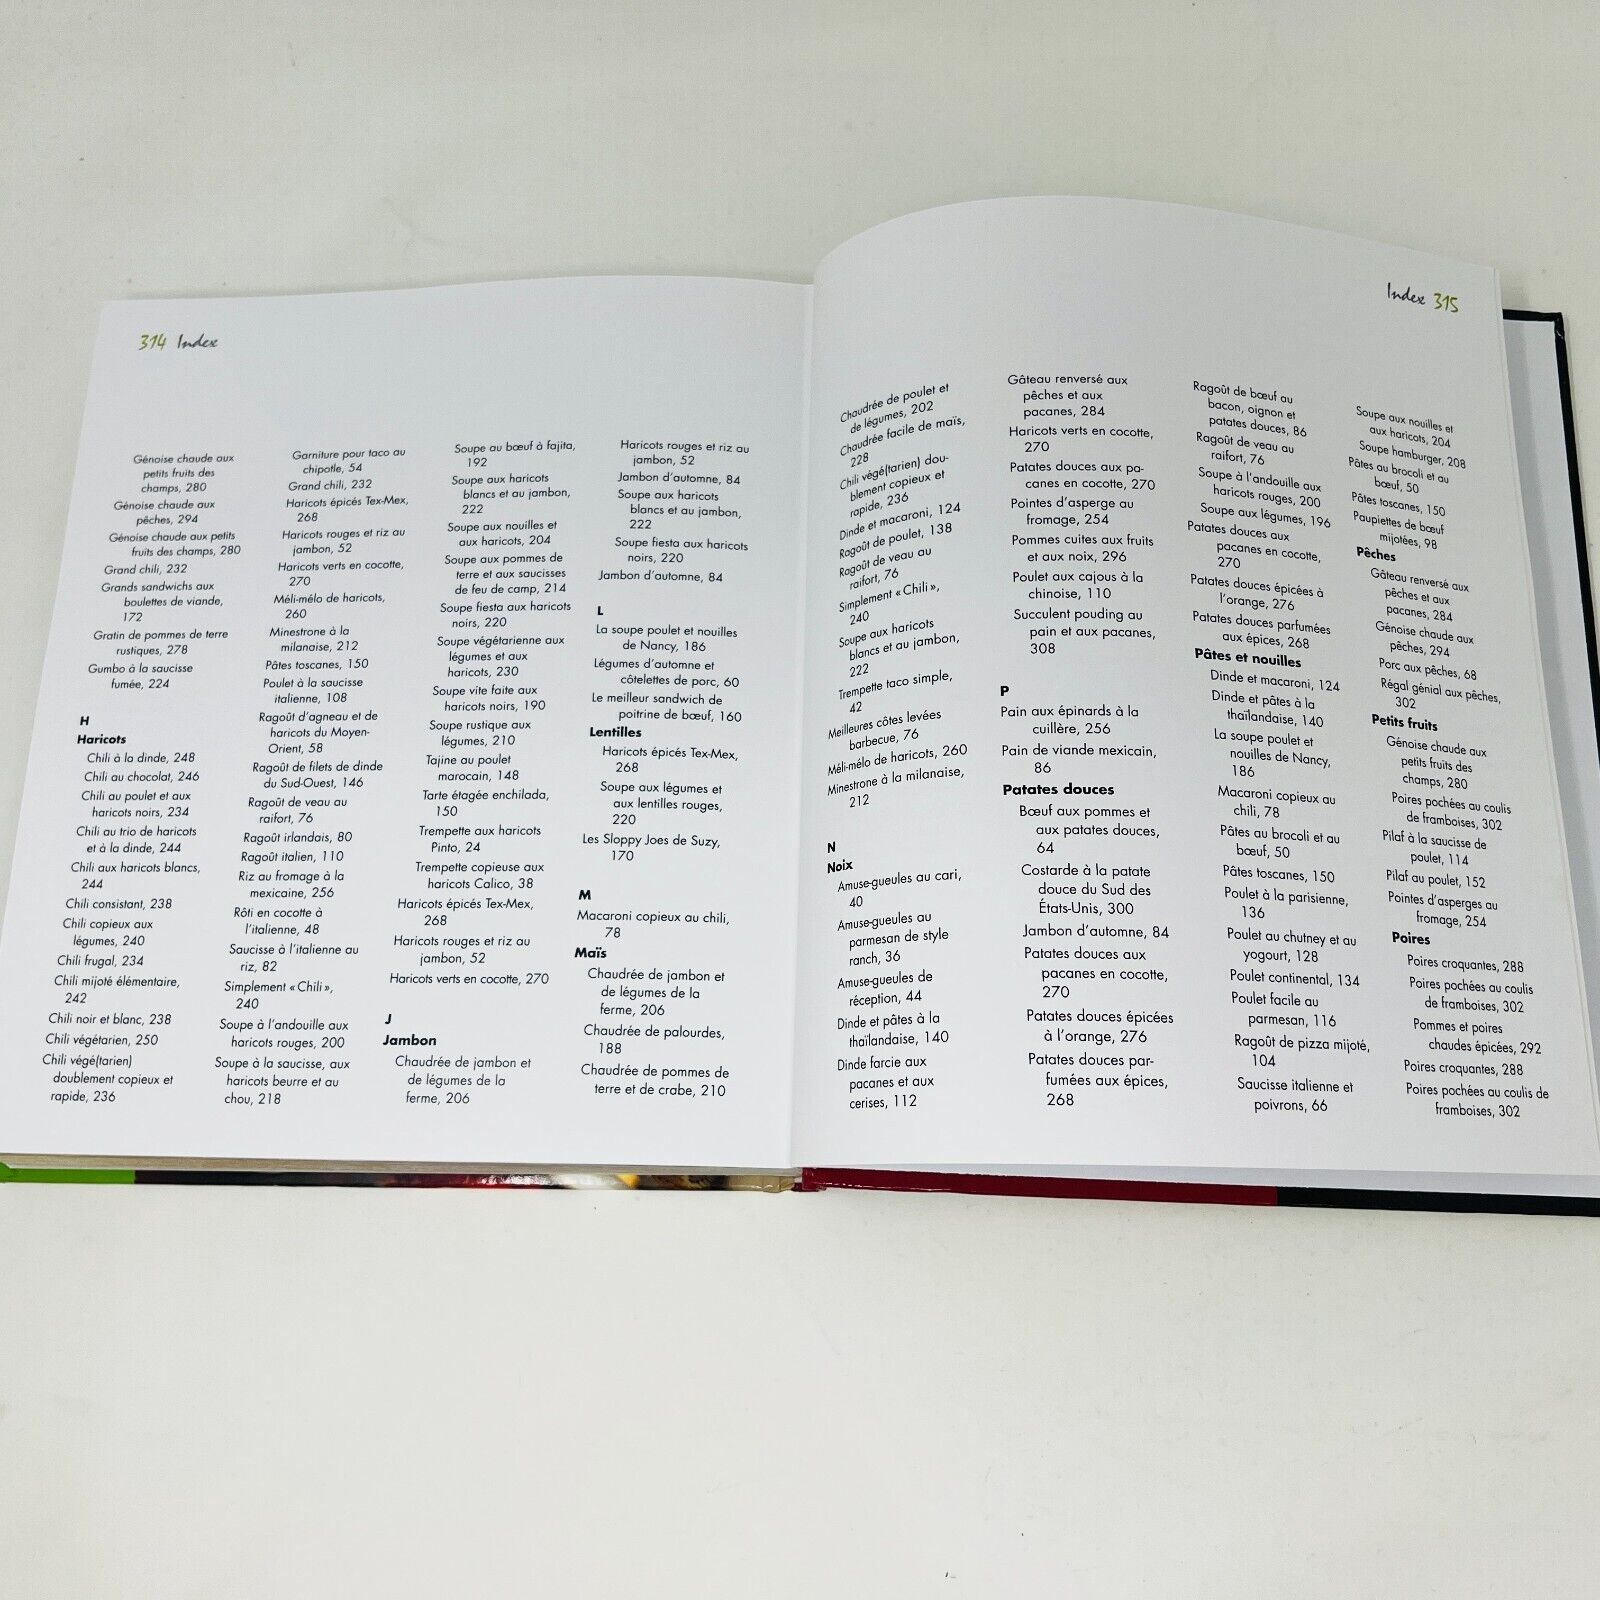 314 Index
Génoise chaude aux
petits fruits des
champs, 280
Génoise chaude aux
pêches, 294
Génoise chaude aux petits
fruits des champs, 280
Grand chili, 232
Grands sandwichs aux
boulettes de viande,
172
Gratin de pommes de terre
rustiques, 278
Gumbo à la saucisse
fumée, 224
H
Haricots
Chili à la dinde, 248
Chili au chocolat, 246
Chili au poulet et aux
haricots noirs, 234
Chili au trio de haricots
et à la dinde, 244
Chili aux haricots blancs,
244
Chili consistant, 238
Chili copieux aux
légumes, 240
Chili frugal, 234
Chili mijoté élémentaire,
242
Chili noir et blanc, 238
Chili végétarien, 250
Chili végé(tarien)
doublement copieux et
rapide, 236
Garniture pour taco au
chipotle, 54
Grand chili, 232
Haricots épicés Tex-Mex,
268
Haricots rouges et riz au
jambon, 52
Haricots verts en cocotte,
270
Méli-mélo de haricots,
260
Minestrone à la
milanaise, 212
Pâtes toscanes, 150
Poulet à la saucisse
italienne, 108
Ragoût d'agneau et de
haricots du Moyen-
Orient, 58
Ragoût de filets de dinde
du Sud-Ouest, 146
Ragoût de veau au
raifort, 76
Ragoût irlandais, 80
Ragoût italien, 110
Riz au fromage à la
mexicaine, 256
Rôti en cocotte à
l'italienne, 48
Saucisse à l'italienne au
riz, 82
Simplement « Chili »,
240
Soupe à l'andouille aux
haricots rouges, 200
Soupe à la saucisse, aux
haricots beurre et au
chou, 218
Soupe au bœuf à fajita,
192
Soupe aux haricots
blancs et au jambon,
222
Soupe aux nouilles et
aux haricots, 204
Soupe aux pommes de
terre et aux saucisses
de feu de camp, 214
Soupe fiesta aux haricots
noirs, 220
Soupe végétarienne aux
légumes et aux
haricots, 230
Soupe vite faite aux
haricots noirs, 190
Soupe rustique aux
légumes, 210
Tajine au poulet
marocain, 148
Tarte étagée enchilada,
150
Trempette aux haricots
Pinto, 24
Trempette copieuse aux
haricots Calico, 38
Haricots épicés Tex-Mex,
268
Haricots rouges et riz au
jambon, 52
Haricots verts en cocotte, 270
J
Jambon
Chaudrée de jambon et
de légumes de la
ferme, 206
Haricots rouges et riz au
jambon, 52
Jambon d'automne, 84
Soupe aux haricots
blancs et au jambon,
222
Soupe fiesta aux haricots
noirs, 220
Jambon d'automne, 84
L
La soupe poulet et nouilles
de Nancy, 186
Légumes d'automne et
côtelettes de porc, 60
Le meilleur sandwich de
poitrine de bœuf, 160
Lentilles
Haricots épicés Tex-Mex,
268
Soupe aux légumes et
aux lentilles rouges,
220
Les Sloppy Joes de Suzy,
170
M
Macaroni copieux au chili,
78
Maïs
Chaudrée de jambon et
de légumes de la
ferme, 206
Chaudrée de palourdes,
188
Chaudrée de pommes de
terre et de crabe, 210
Index 315
Chaudrée de poulet et
de légumes, 202
Chaudrée facile de maïs,
228
Chili végé(tarien) dou-
blement copieux et
rapide, 236
Dinde et macaroni, 124
Ragoût de poulet, 138
Ragoût de veau au
raifort, 76
Simplement « Chili »,
240
Soupe aux haricots
blancs et au jambon,
222
Trempette taco simple,
42
Meilleures côtes levées
barbecue, 76
Méli-mélo de haricots, 260
Minestrone à la milanaise,
212
N
Noix
Amuse-gueules au cari,
40
Amuse-gueules au
parmesan de style
ranch, 36
Amuse-gueules de
réception, 44
Dinde et pâtes à la
thaïlandaise, 140
Dinde farcie aux
pacanes et aux
cerises, 112
Gâteau renversé aux
pêches et aux
pacanes, 284
Haricots verts en cocotte,
270
Patates douces aux pa-
canes en cocotte, 270
Pointes d'asperge au
fromage, 254
Pommes cuites aux fruits
et aux noix, 296
Poulet aux cajous à la
chinoise, 110
Succulent pouding au
pain et aux pacanes,
308
P
Pain aux épinards à la
cuillère, 256
Pain de viande mexicain,
86
Patates douces
Bœuf aux pommes et
aux patates douces,
64
Costarde à la patate
douce du Sud des
États-Unis, 300
Jambon d'automne, 84
Patates douces aux
pacanes en cocotte,
270
Patates douces épicées
à l'orange, 276
Patates douces par-
fumées aux épices,
268
Ragoût de bœuf au
bacon, oignon et
patates douces, 86
Ragoût de veau au
raifort, 76
Soupe à l'andouille aux
haricots rouges, 200
Soupe aux légumes, 196
Patates douces aux
pacanes en cocotte,
270
Patates douces épicées à
l'orange, 276
Patates douces parfumées
aux épices, 268
Pâtes et nouilles
Dinde et macaroni, 124
Dinde et pâtes à la
thaïlandaise, 140
La soupe poulet et
nouilles de Nancy,
186
Macaroni copieux au
chili, 78
Pâtes au brocoli et au
bœuf, 50
Pâtes toscanes, 150
Poulet à la parisienne,
136
Poulet au chutney et au
yogourt, 128
Poulet continental, 134
Poulet facile au
parmesan, 116
Ragoût de pizza mijoté,
104
Saucisse italienne et
poivrons, 66
Soupe aux nouilles et
aux haricots, 204
Soupe hamburger, 208
Pâtes au brocoli et au
bœuf, 50
Pâtes toscanes, 150
Paupiettes de bœuf
mijotées, 98
Pêches
Gâteau renversé aux
pêches et aux
pacanes, 284
Génoise chaude aux
pêches, 294
Porc aux pêches, 68
Régal génial aux pêches,
302
Petits fruits
Génoise chaude aux
petits fruits des
champs, 280
Poires pochées au coulis
de framboises, 302
Pilaf à la saucisse de
poulet, 114
Pilaf au poulet, 152
Pointes d'asperges au
fromage, 254
Poires
Poires croquantes, 288
Poires pochées au coulis
de framboises, 302
Pommes et poires
chaudes épicées, 292
Poires croquantes, 288
Poires pochées au coulis de
framboises, 302